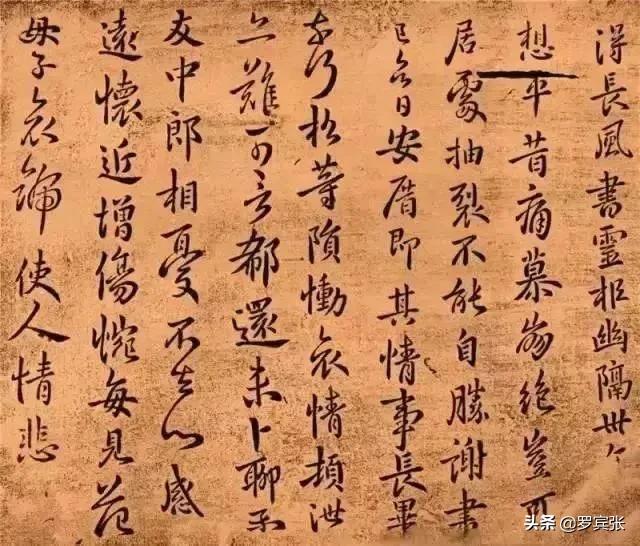 得長風書靈柩幽隔卅
想平昔痛慕崩絕豈可
居處抽裂不能自勝謝書
已日安厝即其情事長畢
奈何松等隕慟哀情頓泄
亡難可言郗還未卜聊示
友中郎相憂不去心感
遠懷近增傷惋每見范
母子哀號使人情悲
头条 @罗宾张